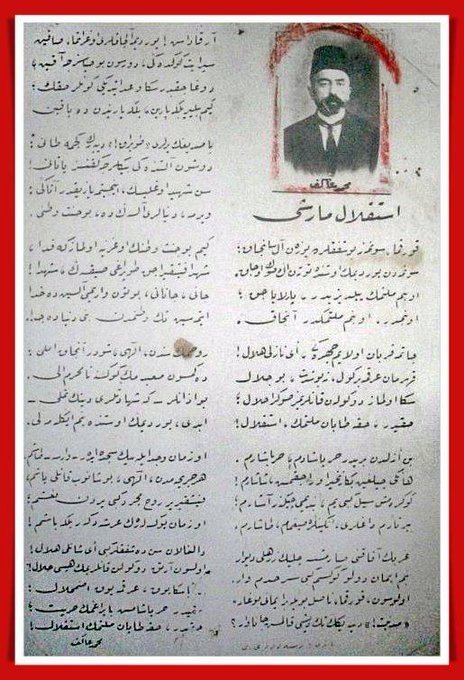 محمد عاكف
استقلال مارشی
قورقما، سونمز بو شفقلرده يوزن آل سنجاق؛
سونمه‌دن يورديمك اوستنده توتن اك صوك اوجاق.
او بنم ملتمك ييلديزيدر، پارلاياجق؛
او بنمدر، او بنم ملتمكدر آنجاق.
چاتما، قربان اولايم، چهره‌كی ای نازلی هلال!
قهرمان عرقمه بر گول! نه بو شدت، بو جلال؟
سكا اولماز دوكولن قانلريمز صوكرا حلال؛
حقيدر، حقه طاپان، ملتمك استقلال!
بن ازلدن بريدر حر ياشادم، حر ياشارم.
هانكی چيلغين بكا زنجير اوراجقمش؟ شاشارم!
كوكره‌مش سيل كبی‌يم، بنديمی چيكنر، آشارم؛
ييرتارم طاغلری، انكينلره صيغمام، طاشارم.
غربك آفاقنی صارمشسه چليك زرهلی ديوار،
بنم ايمان دولو كوكسم كبی سرحدم وار.
اولوسون، قورقما! ناصل بويله بر ايمانی بوغار،
«مدنيت!» ديديكك تك ديشی قالمش جاناوار؟
آرقاداش! يورديمه آلچاقلری اوغراتما، صاقين؛
سپر ايت كوكده‌كی، دورسون بو حياسزجه آقين.
دوغاجقدر سكا وعد ايتديكی كونلر حقك؛
كيم بيلير، بلكه يارين، بلكه ياريندن ده ياقين.
باصديغك يرلری «طوپراق!» دييه‌رك كچمه، طانی!
دوشون آلتنده‌كی بيكلرجه كفنسز ياتانی!
سن شهيد اوغليسك، اينجيتمه، يازيقدر، آتاكی؛
ويرمه، دنيالری آلسه‌ك ده، بو جنت وطنی.
كيم بو جنت وطنك اوغرينه اولماز كه فدا؟
شهدا فيشقيراجق، طوپراغی صيقسه‌ك، شهدا!
جانی، جانانی، بوتون واريمی آلسين ده خدا،
ايتمه‌سين تك وطنمدن بنی دنياده جدا.
روحمك سندن، الهی، شودر آنجاق املی:
دكمه‌سين معبديمك كوكسنه نامحرم الی؛
بو اذانلر - كه شهادتلری دينك تملی -
ابدی، يورديمك اوستنده بنم ايكله‌ملی.
او زمان وجد ايله بيك سجده ايدر - وارسه - طاشم؛
هر جريحه‌مدن، الهی، بوشانوب قانلی ياشم،
فيشقيرير روح مجرد كبی يردن نعشم؛
او زمان يوكسله‌رك عرشه دكر، بلكه، باشم!
دالغالان سن ده شفقلر كبی ای شانلی هلال!
اولسون آرتق دوكولن قانلريمك هپسی حلال!
ابدياً سكا يوق، عرقمه يوق اضمحلال:
حقيدر، حر ياشامش، بايراغمك حريت؛
حقيدر، حقه طاپان، ملتمك استقلال!
محمد عاكف